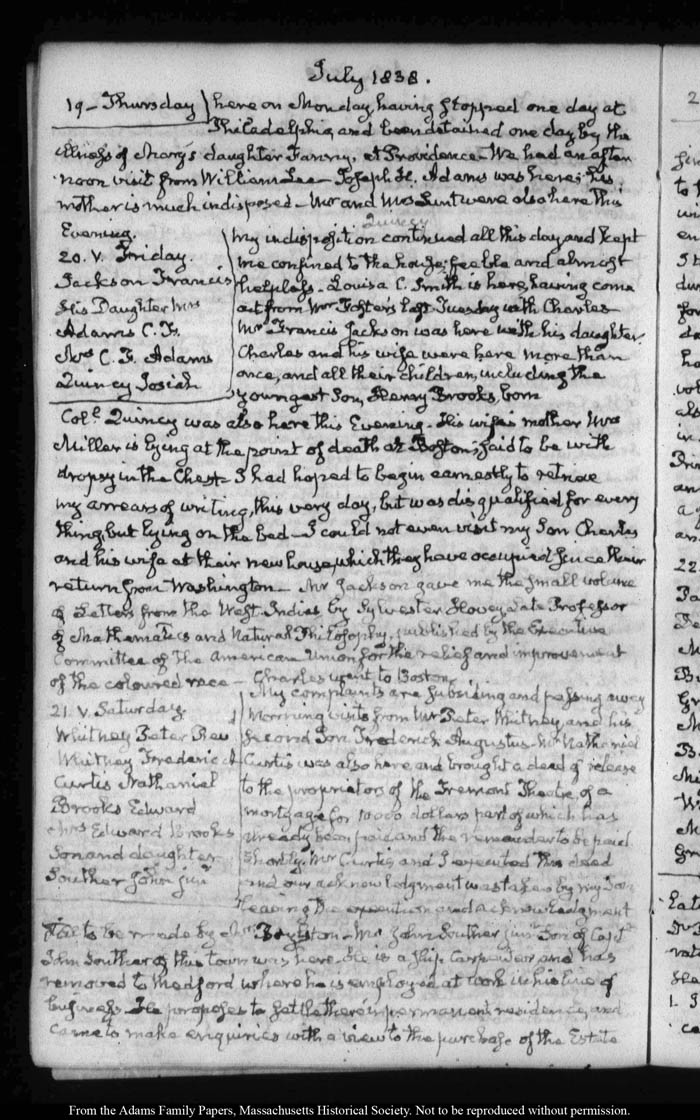 July 1838.
19 - Thursday
here on Monday, having stopped one day at
Philadelphia, and been detained one day by the
illness of Mary's daughter Fanny, at Providence - We had an after
noon visit from William Lee - Joseph H. Adams was here; his
mother is much indisposed - Mr and Mrs Lunt were also here this
Evening.
Quincy
20. V. Friday.
Jackson Francis
His Daughter Mrs
Adams C. F.
Mrs C. F. Adams
Quincy Josiah
My indisposition continued all this day, and kept
me confined to the house; feeble and almost
helpless - Louisa C. Smith is here, having come
out from Mr Foster's last Tuesday with Charles
Mr Francis Jackson was here with his daughter.
Charles and his wife were here more than
once, and all their children, including the
youngest Son, Henry Brooks, born
Coll Quincy was also here this Evening - His wife's mother Mrs
Miller is lying at the point of death at Boston; said to be with
dropsy in the Chest I had hoped to begin earnestly to retrieve
my arrears of writing, this very day, but was disqualified for every
thing, but lying on the bed - I could not even visit my Son Charles
and his wife at their new house, which they have occupied since their
return from Washington - Mr Jackson gave me the small volume
of Letters from the West Indies by Sylvester Hovey, late Professor
of Mathematics and Natural Philosophy, published by the Executive
Committee of the American Union for the relief and improvement
of the coloured race - Charles went to Boston.
21. V. Saturday.
Whitney Peter Rev
Whitney Frederick A
Curtis Nathaniel
Brooks Edward
Mrs Edward Brooks
Son and daughter
Souther John Junr
My complaints are subsiding and passing away
Morning visits from Mr Peter Whitney, and his
second Son Frederick Augustus. Mr Nathaniel
Curtis was also here and brought a deed of release
to the proprietors of the Tremont Theatre, of a
mortgage for 10000 dollars part of which has
already been paid and the remainder to be paid
shortly. Mr Curtis, and I executed this deed
and our acknowledgment was taken by my Son
leaving the execution and acknowledgment
to be made by Boylston - Mr John Souther junr Son of Captt
John Souther of this town was here. He is a ship carpenter and has
removed to Medford where he is employed at work in his line of
business - He proposes to settle there in permanent residence, and
came to make enquiries with a view to the purchase of the Estate
From the Adams Family Papers, Massachusetts Historical Society. Not to be reproduced without permission.